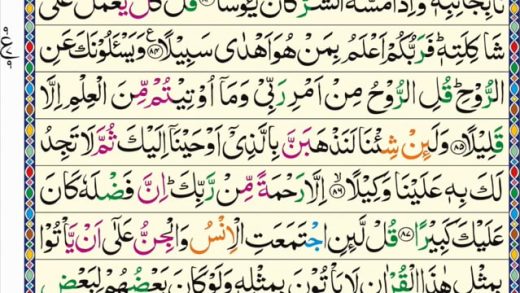 نَاٰ بِجَانِبِهٖ ۚ وَاِذَا مَسَّهُ الشَّرُّ كَانَ يَـُٔوْسًا ۝۸۳ قُلْ كُلٌّ يَّعْمَلُ عَلٰى
شَاكِلَتِهٖ ؕ فَرَبُّكُمْ اَعْلَمُ بِمَنْ هُوَ اَهْدٰى سَبِيْلًا ۝۸۴ وَيَسْـَٔلُوْنَكَ عَنِ
الرُّوْحِ ؕ قُلِ الرُّوْحُ مِنْ اَمْرِ رَبِّيْ وَمَاۤ اُوْتِيْتُمْ مِّنَ الْعِلْمِ اِلَّا
قَلِيْلًا ۝۸۵ وَلَىِٕنْ شِئْنَا لَنَذْهَبَنَّ بِالَّذِيْۤ اَوْحَيْنَاۤ اِلَيْكَ ثُمَّ لَا تَجِدُ
لَكَ بِهٖ عَلَيْنَا وَكِيْلًا ۝۸۶ اِلَّا رَحْمَةً مِّنْ رَّبِّكَ ؕ اِنَّ فَضْلَهٗ كَانَ
عَلَيْكَ كَبِيْرًا ۝۸۷ قُلْ لَّىِٕنِ اجْتَمَعَتِ الْاِنْسُ وَالْجِنُّ عَلٰۤى اَنْ يَّاْتُوْا
بِمِثْلِ هٰذَا الْقُرْاٰنِ لَا يَاْتُوْنَ بِمِثْلِهٖ وَلَوْ كَانَ بَعْضُهُمْ لِبَعْضٍ